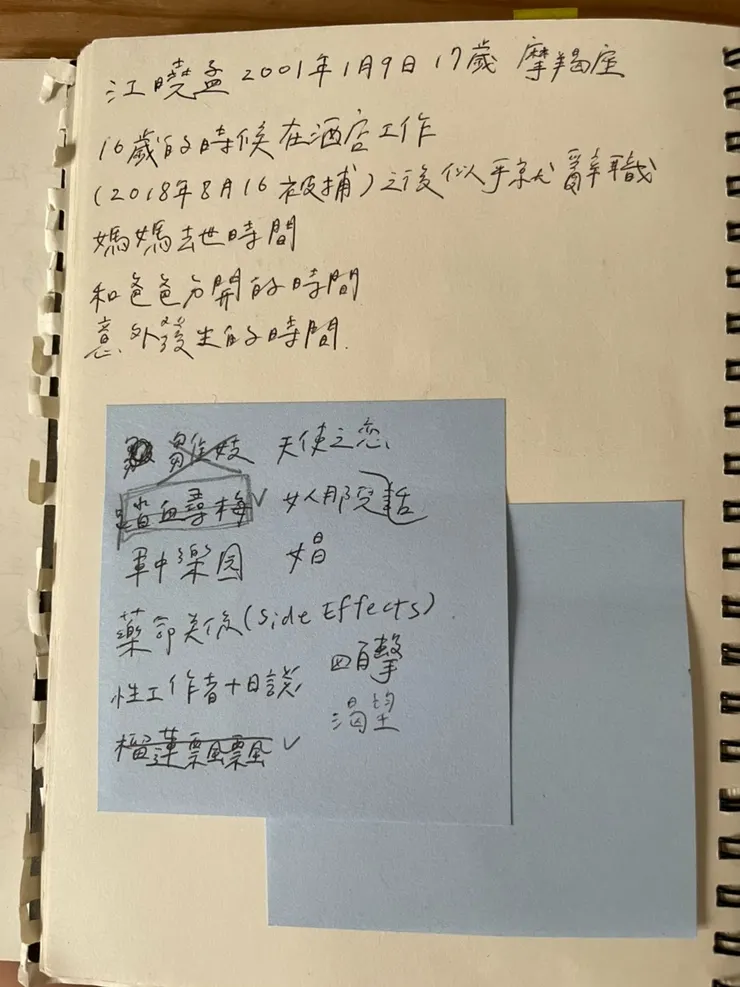 江曉孟 2001年1月9日 17歲 摩羯座
16歲的時候在酒店工作
(2018年8月16被捕)之後似乎就辭職
媽媽去世時間
和爸爸分開的時間
意外發生的時間.
雛妓 天使之恋
踏血尋梅✓ 女人那兒話
軍中樂园 娼
藥命关係(Side Effects)
目擊
性工作者十日談
渴望
榴蓮飄飄✓